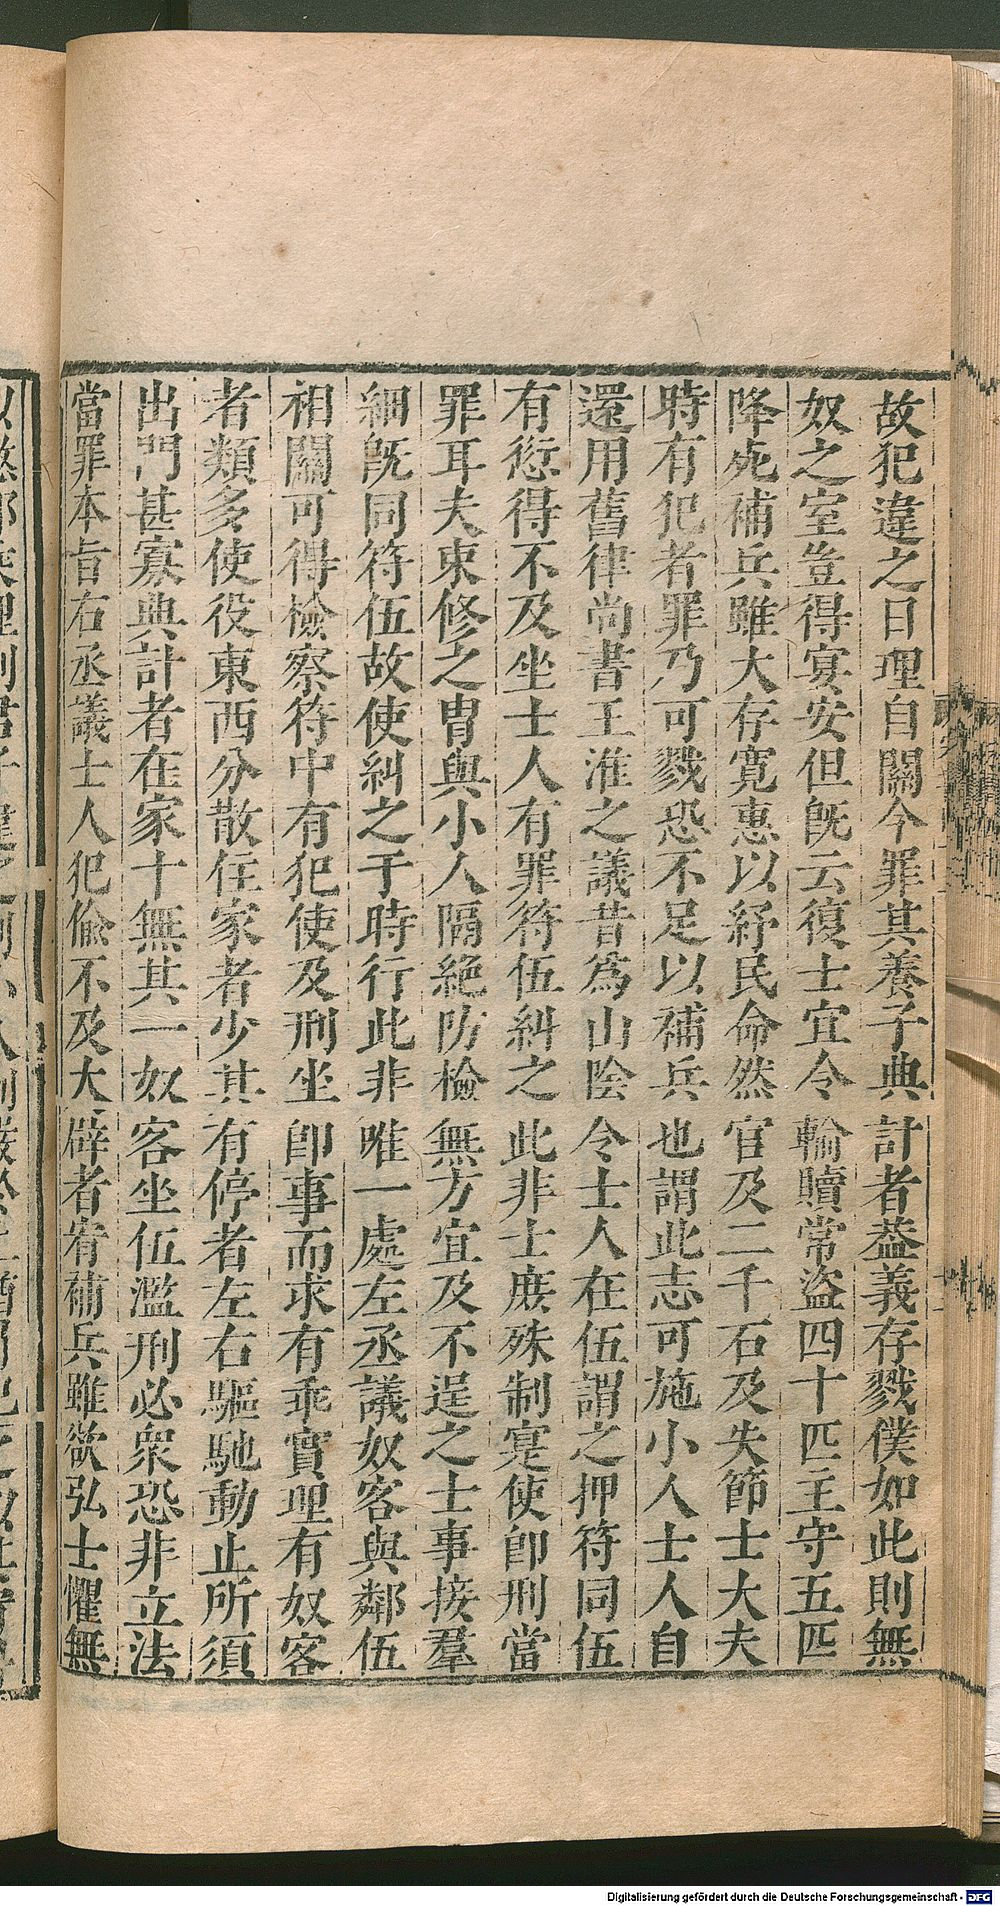 故犯違之日理自關今罪其養子典計者葢義存戮僕如此則無
奴之室豈得宴安但旣云復士宜令輸贖常盜四十匹主守五匹
降死補兵雖大存寬惠以紓民命然官及二千石及失節士大夫
時有犯者罪乃可戮恐不足以補兵也謂此志可施小人士人自
還用舊律尚書王淮之議昔為山陰令士人在伍謂之押符同伍
有愆得不及坐士人有罪符伍糾之此非士庶殊制寔使卽刑當
罪耳夫束修之胄與小人隔絶防檢無方宜及不逞之士事接羣
細旣同符伍故使糾之于時行此非唯一處左丞議奴客與鄰伍
相關可得檢察符中有犯使及刑坐卽事而求有乖實理有奴客
者類多使役東西分散住家者少其有停者左右驅馳動止所須
出門甚寡典計者在家十無其一奴客坐伍濫刑必衆恐非立法
當罪本旨右丞議士人犯偷不及大辟者宥補兵雖欲弘士懼無
Digitalisierung gefördert durch die Deutsche Forschungsgemeinschaft - DFG